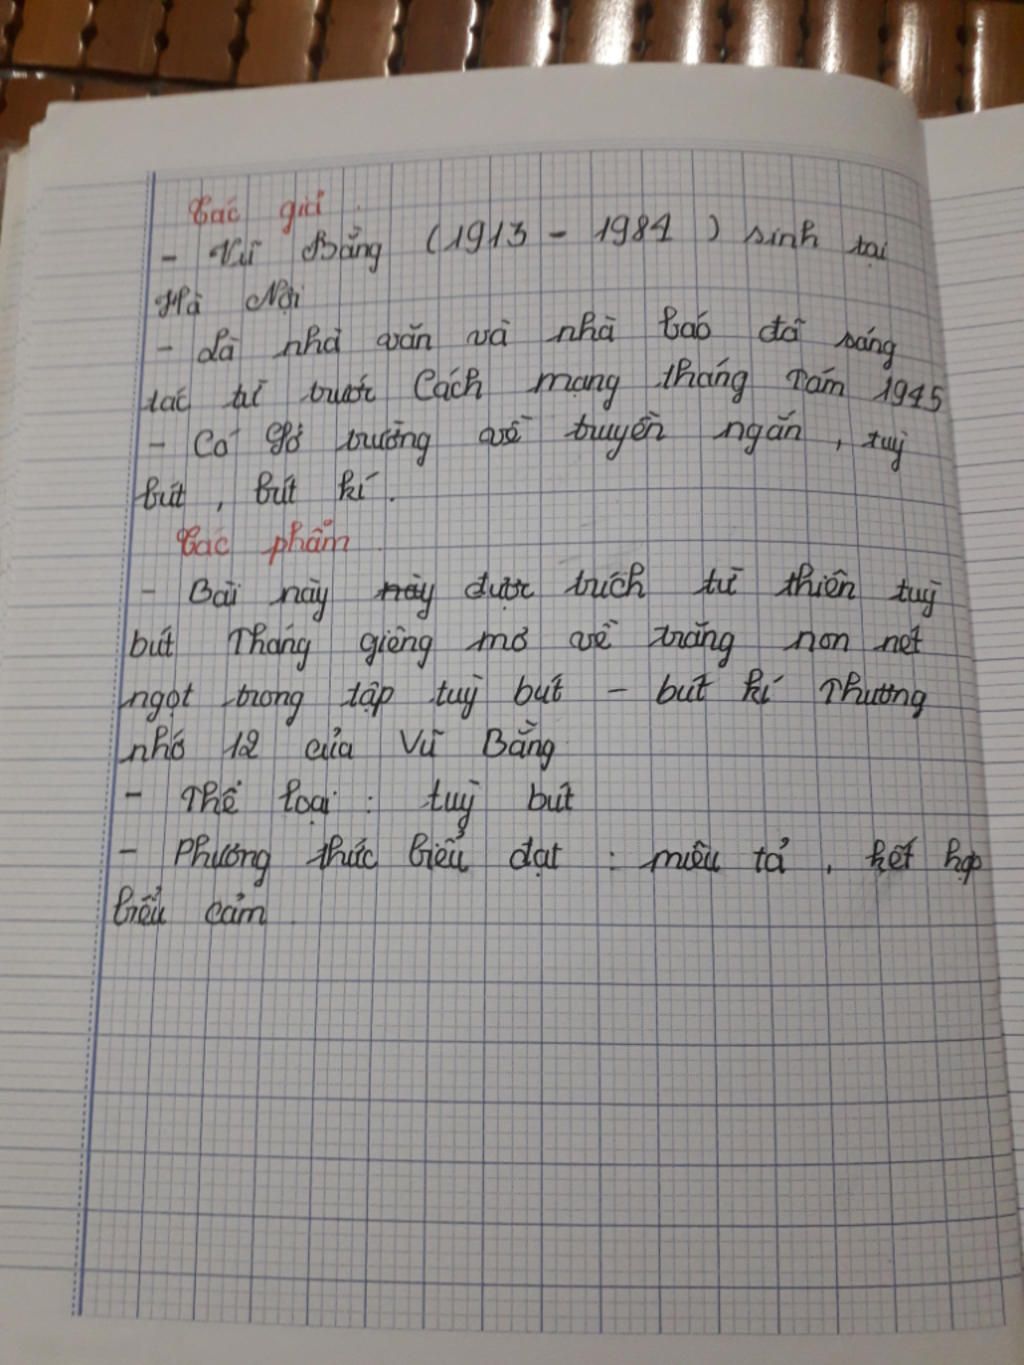 Tác giả.
- Vũ Bằng (1913 - 1984) sinh tại
Hà Nội
- Là nhà văn và nhà báo đã sáng
tác từ trước Cách mạng tháng Tám 1945
- Có sở trường về truyền ngắn, tuỳ
bút, bút kí.
Tác phẩm.
- Bài này này được trích từ thiên tuỳ
bút Tháng giêng mơ về trăng non rét
ngọt trong tập tuỳ bút - bút kí Thương
nhớ 12 của Vũ Bằng
- Thể loại: tuỳ bút
- Phương thức biểu đạt: miêu tả, kết hợp
biểu cảm.